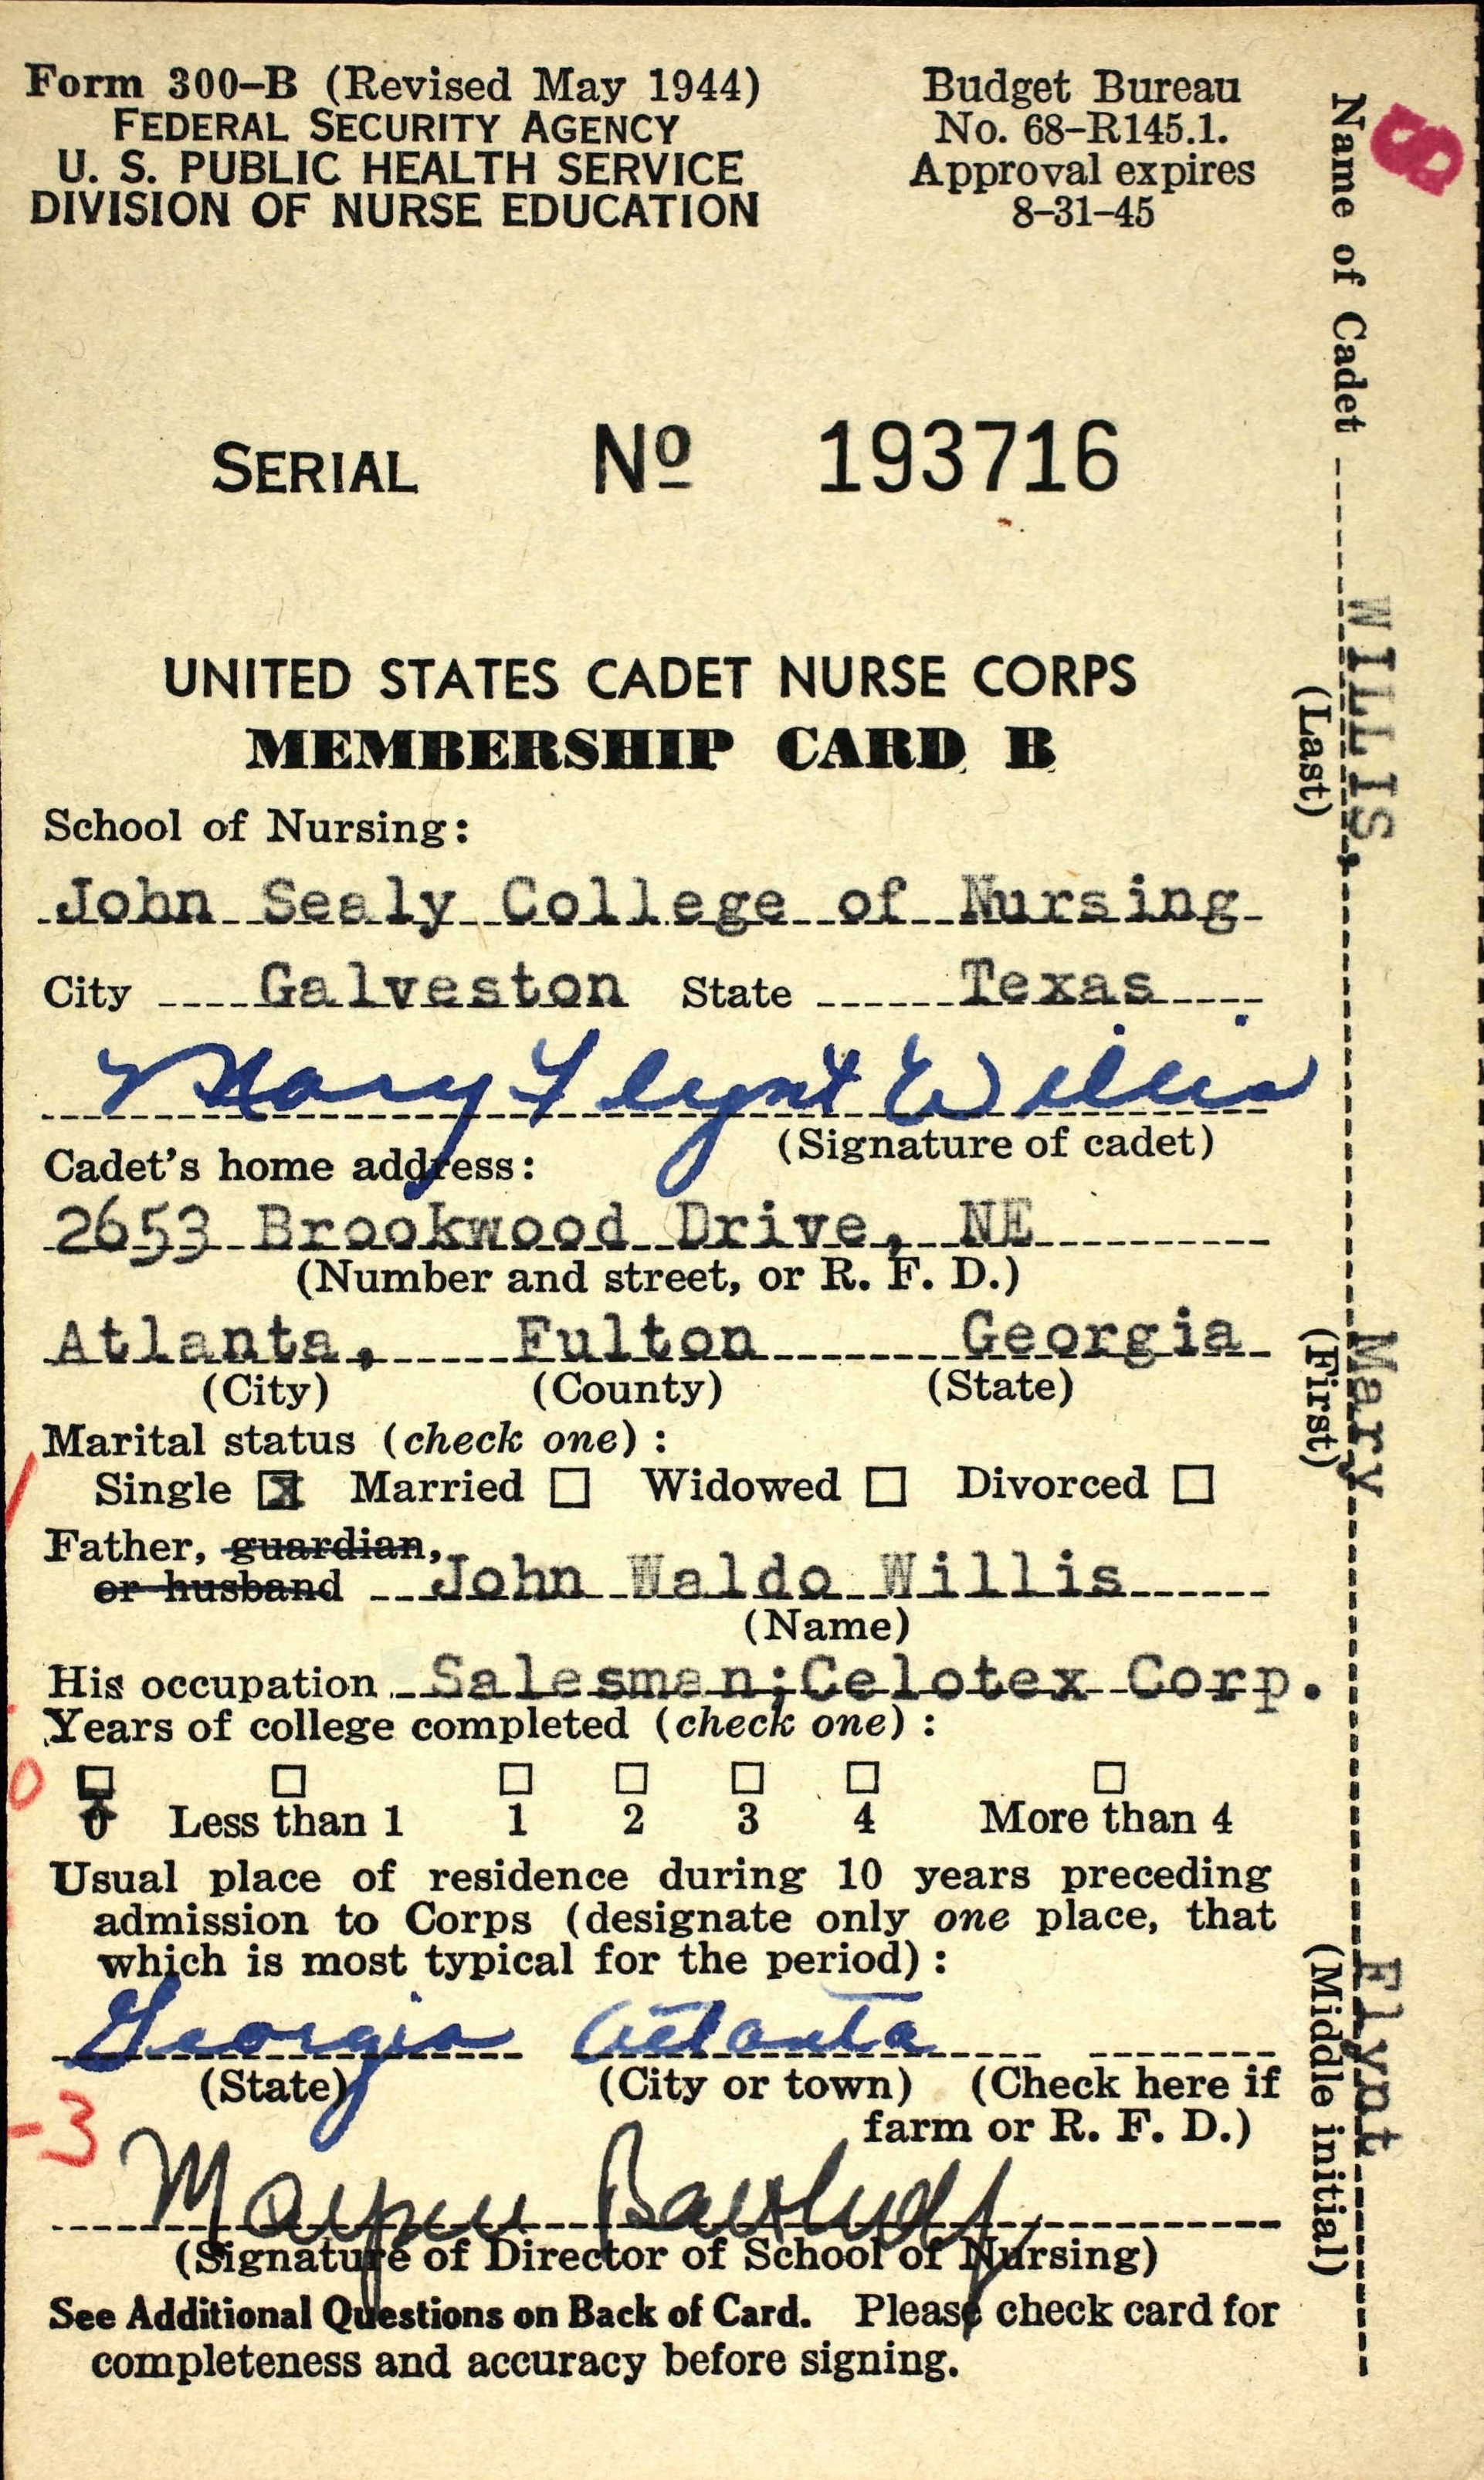 Form 300-B (Revised May 1944)
FEDERAL SECURITY AGENCY
U. S. PUBLIC HEALTH SERVICE
DIVISION OF NURSE EDUCATION
Budget Bureau
No. 68-R145.1.
Approval expires
8-31-45
SERIAL No 193716
UNITED STATES CADET NURSE CORPS
MEMBERSHIP CARD B
School of Nursing:
John Sealy College of Nursing
City Galveston State Texas
Mary Flynt Willis
(Signature of cadet)
Cadet's home address:
2653 Brookwood Drive, NE
(Number and street, or R. F. D.)
Atlanta, Fulton Georgia
(City) (County) (State)
Marital status (check one):
Single x Married Widowed Divorced
Father, guardian,
or husband John Waldo Willis
(Name)
His occupation Salesman;Celotex Corp.
Years of college completed (check one):
0
0 Less than 1 1 2 3 4 More than 4
Usual place of residence during 10 years preceding
admission to Corps (designate only one place, that
which is most typical for the period):
Georgia Atlanta
(State) (City or town) (Check here if
farm or R. F. D.)
-3
(Signature of Director of School of Nursing)
See Additional Questions on Back of Card. Please check card for
completeness and accuracy before signing.
8
Name of Cadet WILLIS, Mary Flynt
(Last) (First) (Middle initial)